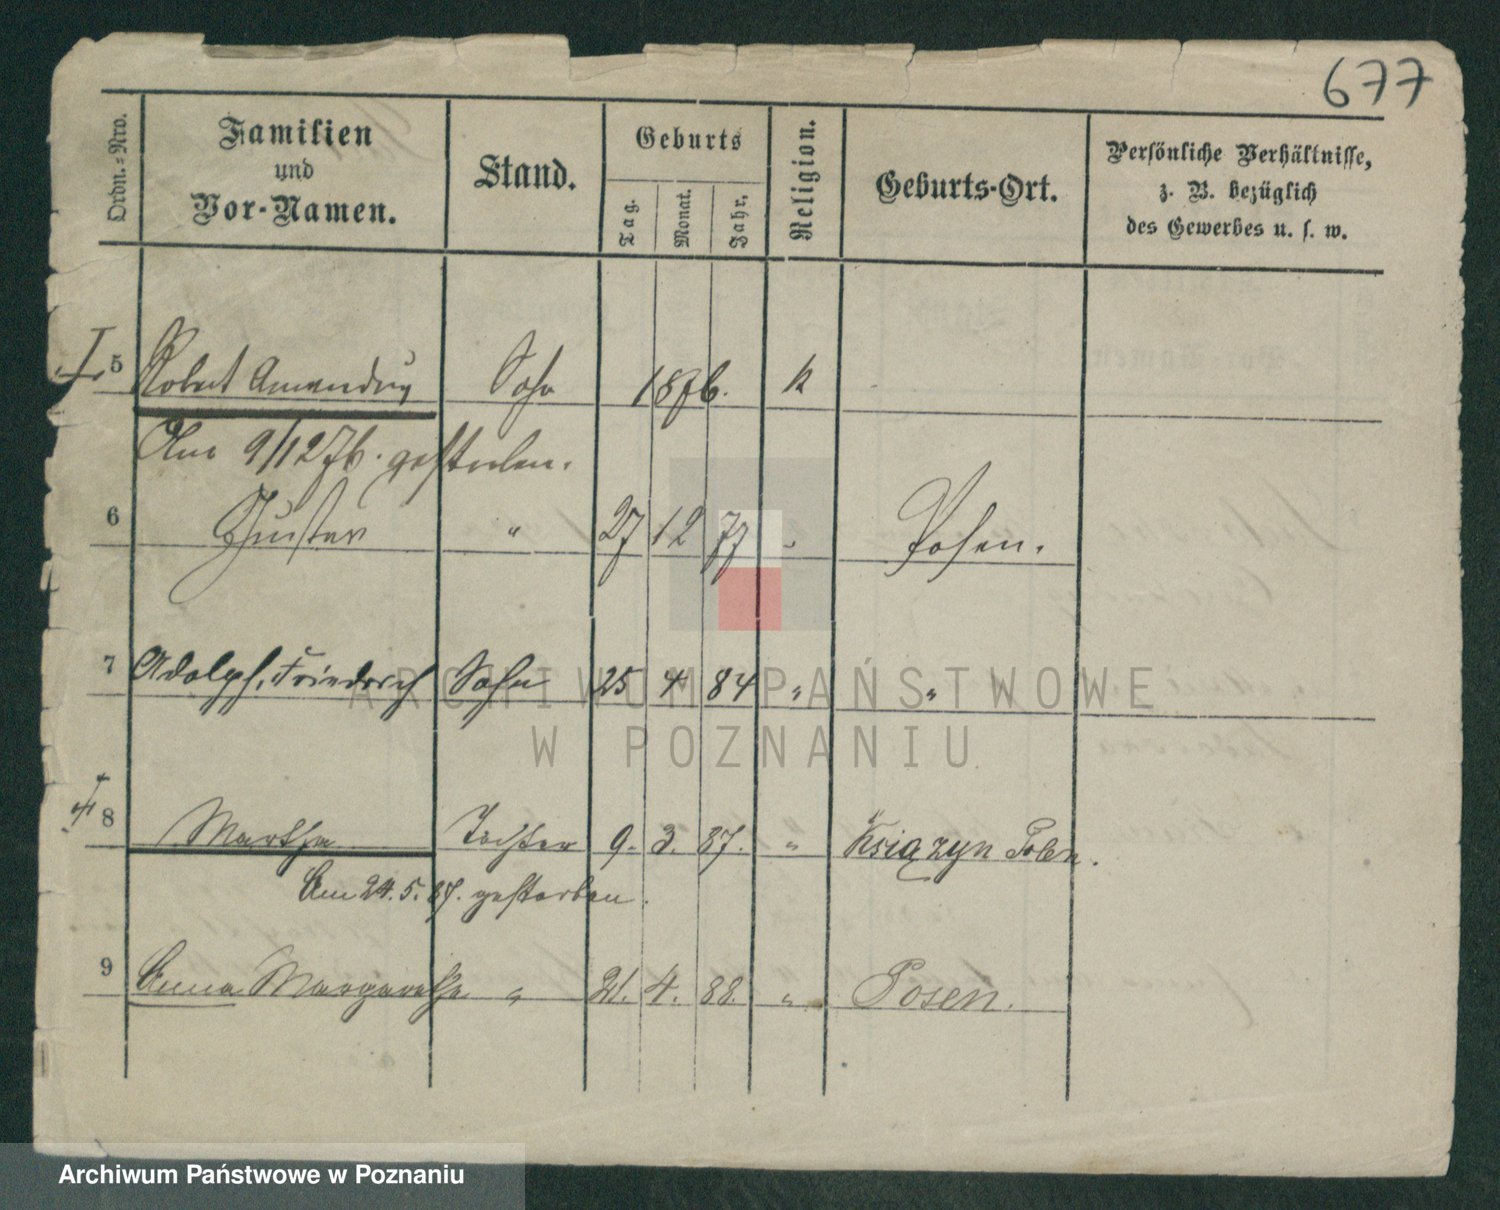 677
Ordn.-Nro.
Familien
und
Vor-Namen.
Stand.
Geburts
Tag.
Monat.
Jahr.
Religion.
Geburts-Ort.
Persönliche Verhältnisse,
z. B. bezüglich
des Gewerbes u. s. w.
5 Robert Amandus Sohn 1876. k
Am 9/12 76. gestorben.
6 Gustav " 27 12 77 " Posen.
7 Adolph, Friedrich Sohn 25 4 84 " "
8 Martha Tochter 9. 3. 87. " Książyn Polen.
Am 24. 5. 87. gestorben.
9 Anna Margarethe " 21. 4. 88. " Posen.
ARCHIWUM PAŃSTWOWE
W POZNANIU
Archiwum Państwowe w Poznaniu